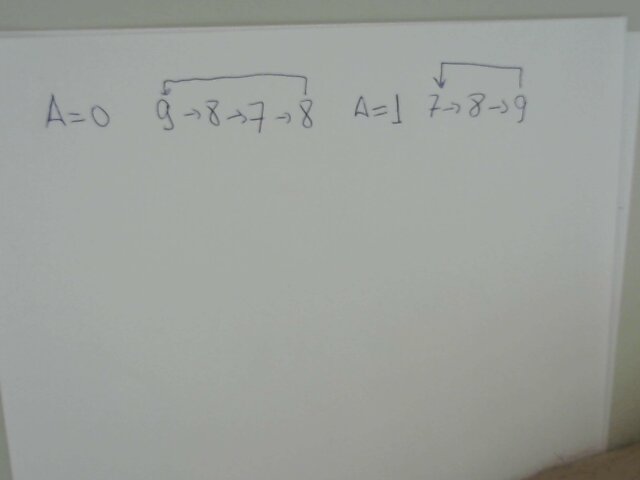 A=0 9→8→7→8 A=1 7→8→9